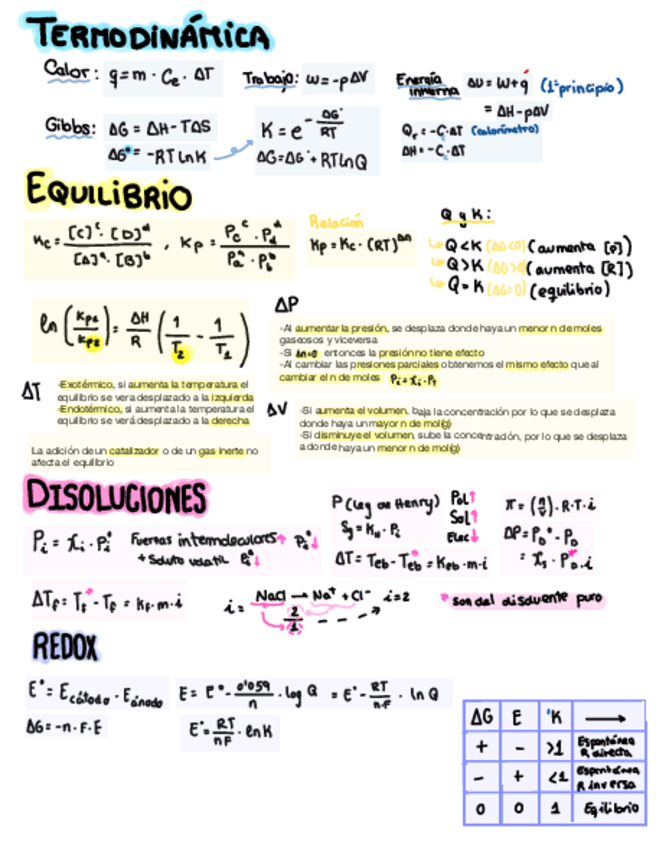 TERMODINÁMICA
Calor: q = m · Ce · ΔT
Trabajo: w = -pΔV
Energía interna ΔU = W + q (1º principio)
= ΔH - pΔV
Gibbs: ΔG = ΔH - TΔS
ΔG° = -RT ln K
K = e^(-ΔG°/RT)
ΔG = ΔG° + RT ln Q
Qr = -C·ΔT (calorímetro)
ΔH = -C·ΔT
EQUILIBRIO
Kc = [C]^c · [D]^d / [A]^a · [B]^b , Kp = Pc^c · Pd^d / Pa^a · Pb^b
Relación
Kp = Kc · (RT)^Δn
Q y K:
Q < K (ΔG<0) (aumenta [P])
Q > K (ΔG>0) (aumenta [R])
Q = K (ΔG=0) (equilibrio)
ln (Kp1 / Kp2) = ΔH/R (1/T2 - 1/T1)
ΔP
-Al aumentar la presión, se desplaza donde haya un menor n de moles
gaseosos y viceversa
-Si Δn=0 entonces la presión no tiene efecto
-Al cambiar las presiones parciales obtenemos el mismo efecto que al
cambiar el n de moles Pi = xi · PT
ΔT
-Exotérmico, si aumenta la temperatura el
equilibrio se vera desplazado a la izquierda
-Endotérmico, si aumenta la temperatura el
equilibrio se verá desplazado a la derecha
ΔV
-Si aumenta el volumen, baja la concentración por lo que se desplaza
donde haya un mayor n de mol(g)
-Si disminuye el volumen, sube la concentración, por lo que se desplaza
a donde haya un menor n de mol(g)
La adición de un catalizador o de un gas inerte no
afecta el equilibrio
DISOLUCIONES
Pi = xi · Pi°
Fuerzas intermoleculares↑ P°↓
+ Soluto volatil P°↓
P (Ley de Henry)
Sg = KH · Pi
Pol↑
Sol↑
Elec↓
π = (n/V) · R · T · i
ΔP = PD° - PD
= xs · PD* · i
ΔT = Teb - Teb* = Keb · m · i
ΔTf = Tf* - Tf = Kf · m · i
i = NaCl → Na+ + Cl- i = 2
2/1
* son del disolvente puro
REDOX
E° = Ecátodo - Eánodo
E = E° - 0'059/n · log Q = E° - RT/nF · ln Q
ΔG = -n · F · E
E° = RT/nF · lnK
ΔG E °K →
+ - >1 Espontánea R directa
- + <1 Espontánea R inversa
0 0 1 Eqilibrio